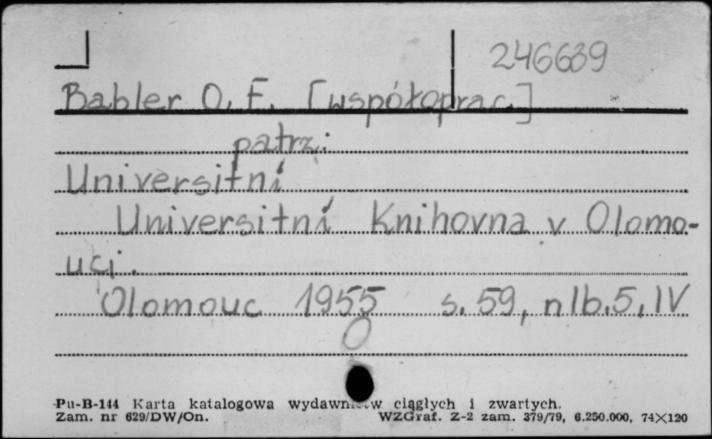 246639
Babler O. F. [współoprac.]
patrz:
Universitní
Universitní Knihovna v Olomo-
uci.
Olomouc 1955 s. 59, nlb. 5, IV
Pu-B-144 Karta katalogowa wydawnictw ciągłych i zwartych.
Zam. nr 629/DW/On. WZGraf. Z-2 zam. 379/79, 6.250.000, 74×120